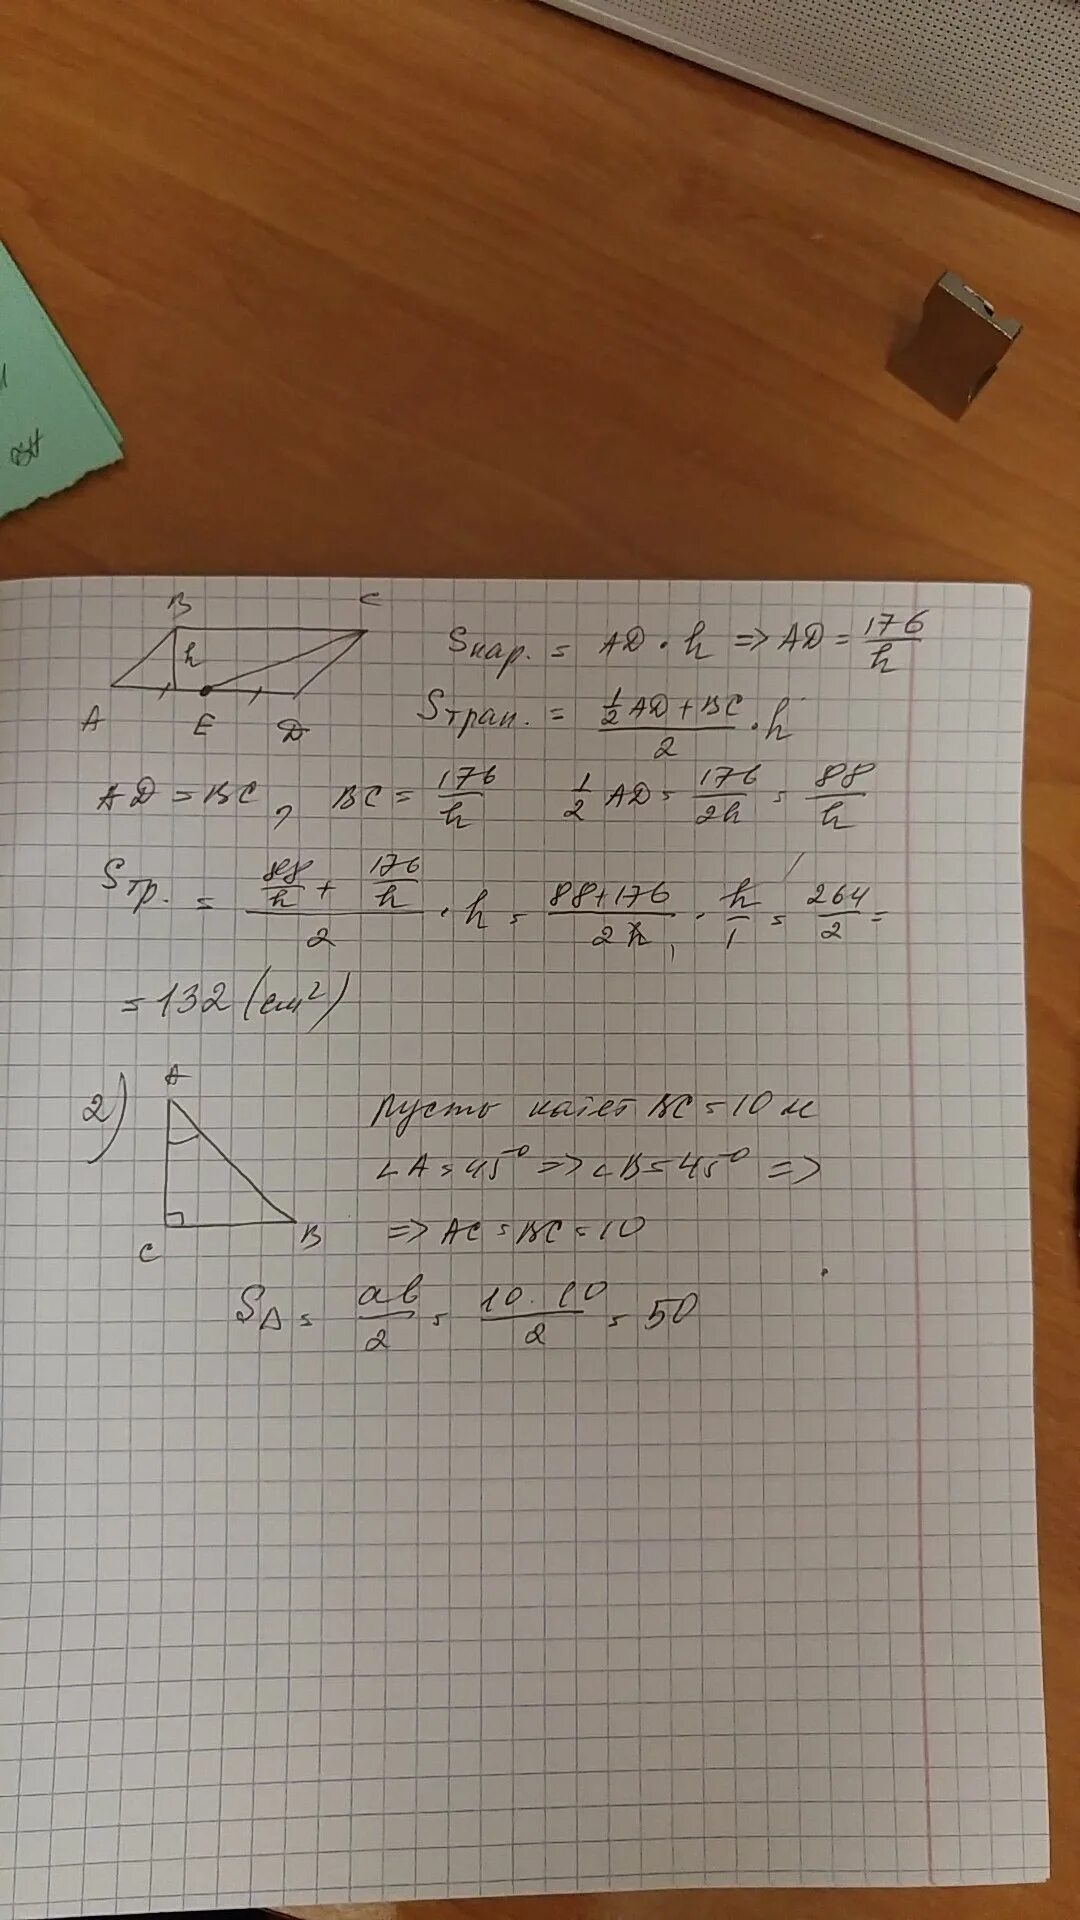 B C
h
A E D
Sпар. = AD · h => AD = 176/h
Sтрап. = (1/2 AD + BC)/2 · h
AD = BC, BC = 176/h 1/2 AD = 176/2h = 88/h
Sтр. = (88/h + 176/h)/2 · h = (88+176)/2h · h/1 = 264/2 =
= 132 (см²)
2) A
C B
Пусть катет BC = 10 м
∠A = 45° => ∠B = 45° =>
=> AC = BC = 10
S∆ = ab/2 = 10·10/2 = 50